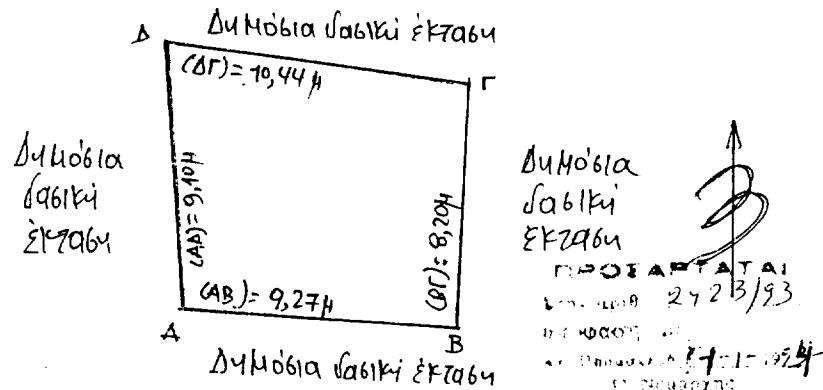 Δημόσια δασική έκταση
Δ
(ΔΓ)= 10,44 μ
Γ
Δημόσια
δασική
έκταση
(ΑΔ)= 9,10μ
(ΒΓ)= 8,20μ
Δημόσια
δασική
έκταση
(ΑΒ)= 9,27μ
Α
Β
Δημόσια δασική έκταση
ΠΡΟΣΑΡΤΑΤΑΙ
2423/93